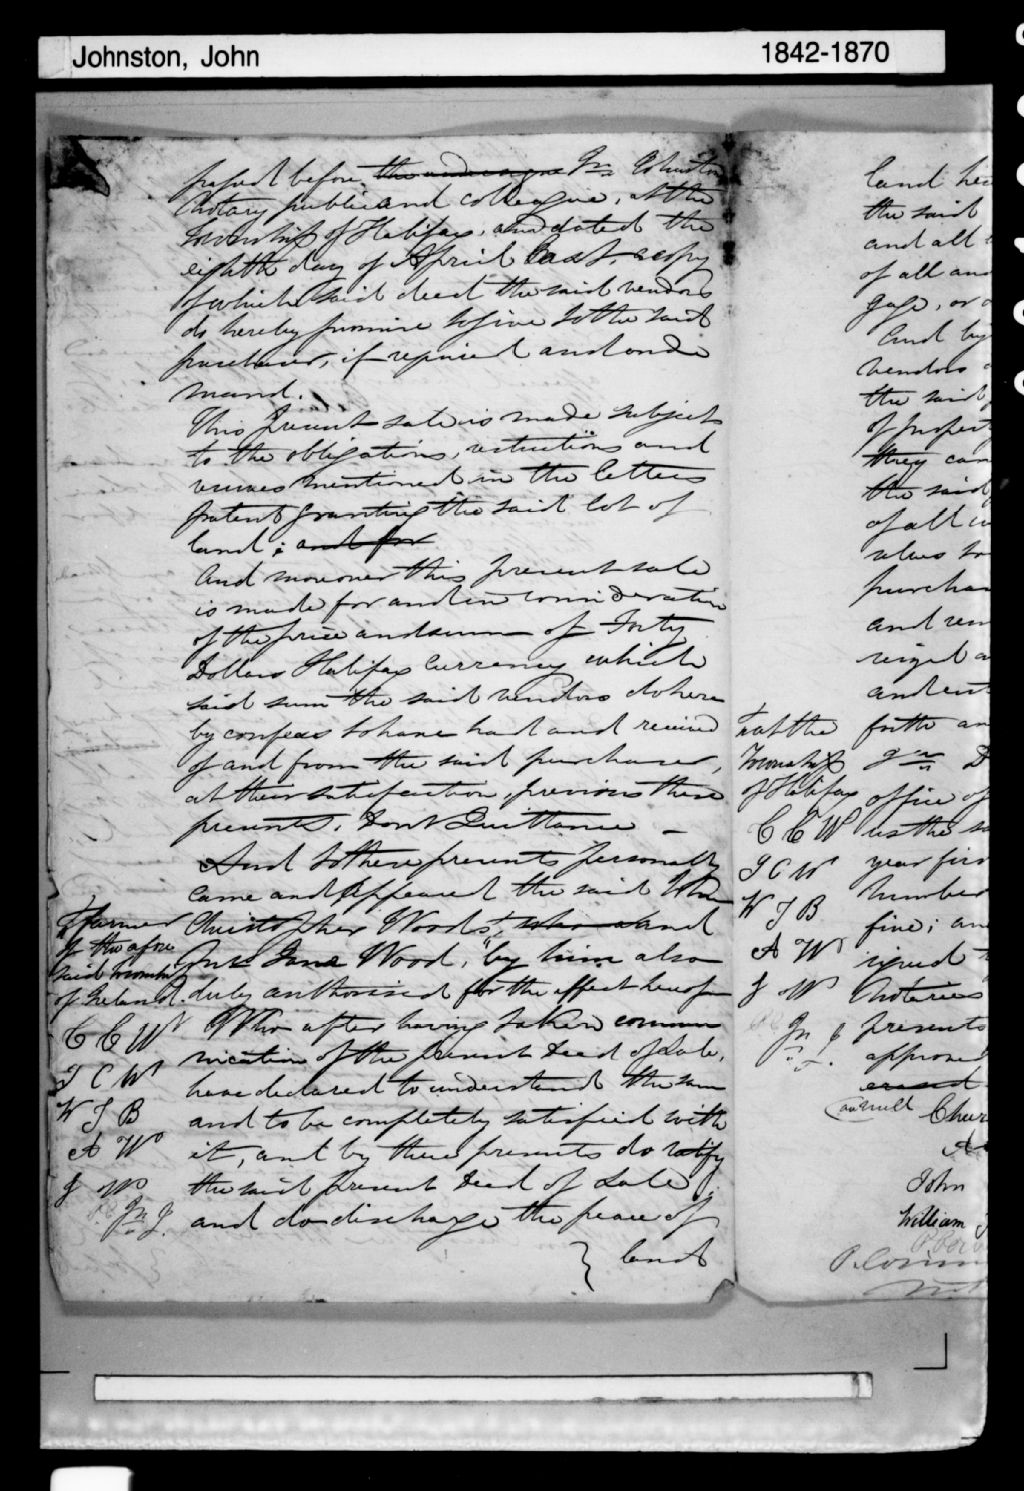 Johnston, John 1842-1870
passed before the undersigne Jn Johnston
Notary public and colleague, at the
Township of Halifax, and dated the
eighth day of April last a copy
of which said deed the said vendors
do hereby promise to give to the said
purchaser, if required and on de
mand.
This present sale is made subject
to the obligations, restrictions and
mentioned in the letters
patent granting the said lot of
land ; and for
And moreover this present sale
is made for and in consideration
of the price and sum of Forty
Dollars Halifax Currency which
said sum the said vendors do here
by confess to have had and received
of and from the said purchaser,
at their satisfaction previous these
presents. Dont Quittance –
And to these presents personally
came and appeared the said John
Christopher Woods, who and
Jane Wood, by him also
duly authorised for the effect hereof
Who after having taken commu
nication of the present Deed of Sale,
have declared to understand the same
and to be completely satisfied with
it, and by these presents do ratify
the said present Deed of Sale
and do discharge the peace of
land
farmer
of the afore
said township
of Ireland.
C C W
J C W
W J B
A W
J W
Jn J.
at the
Township
of Halifax
C C W
J C W
W J B
A W
J W
Jn J
land her
the said
and all
of all and
gage, or
And by
vendors
the said
of propert
they can
the said
of all
selves
purchas
and ren
reigel
and ent
forth an
office of
us the sa
year firs
number
five; an
signed t
Notaries
presents
approved
erased
annull
John
William